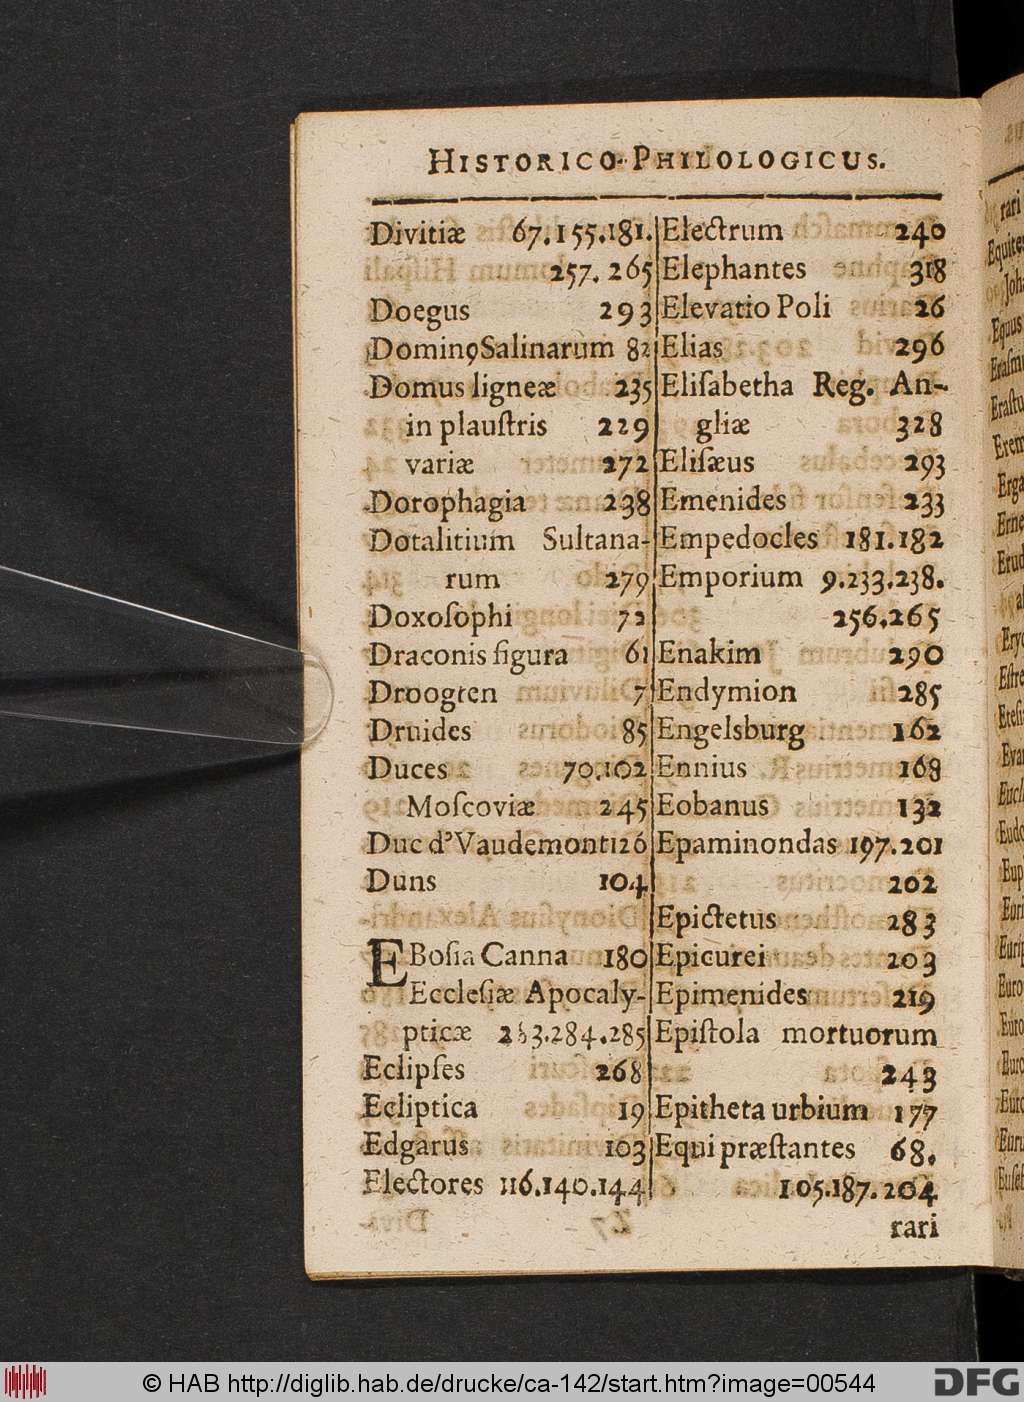 HISTORICO-PHILOLOGICUS.
Divitiæ 67.155.181.
257. 265
Doegus 293
Dominꝰ Salinarum 82
Domus ligneæ 235
in plauſtris 229
variæ 272
Dorophagia 238
Dotalitium Sultana-
rum 279
Doxoſophi 72
Draconis figura 61
Droogten 7
Druides 85
Duces 70.102
Moſcoviæ 245
Duc d'Vaudemont 126
Duns 104
EBoſia Canna 180
Eccleſiæ Apocaly-
pticæ 283.284.285
Eclipſes 268
Ecliptica 19
Edgarus 103
Electores 116.140.144
Electrum 240
Elephantes 318
Elevatio Poli 26
Elias 296
Eliſabetha Reg. An-
gliæ 328
Eliſæus 293
Emenides 233
Empedocles 181.182
Emporium 9.233.238.
256.265
Enakim 290
Endymion 285
Engelsburg 162
Ennius 168
Eobanus 132
Epaminondas 197.201
202
Epictetus 283
Epicurei 203
Epimenides 219
Epiſtola mortuorum
243
Epitheta urbium 177
Equi præſtantes 68.
105.187.204
rari
rari
Equites
Joh
Equus
Eraſm
Eraſtu
Erem
Erga
Erne
Erud
Eryc
Eſtre
Eteſi
Evan
Eucl
Eudo
Eup
Euri
Eurip
Euro
Euro
Euro
Euro
Euru
Euſeb
© HAB http://diglib.hab.de/drucke/ca-142/start.htm?image=00544
DFG